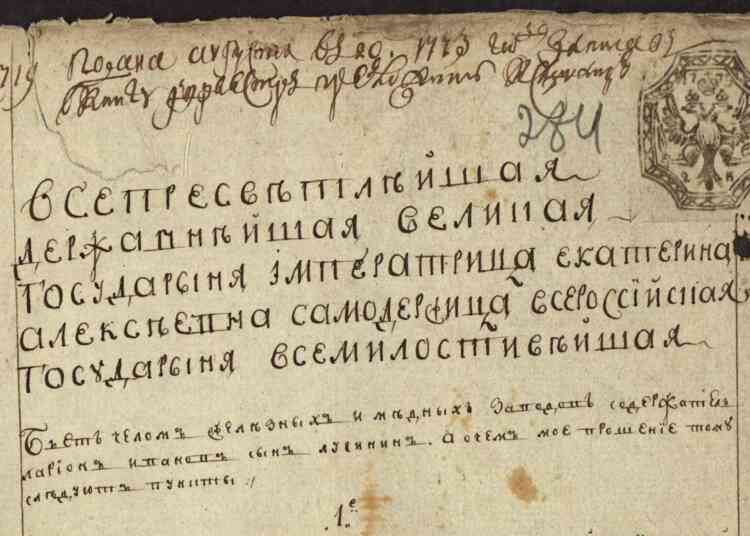 719
Подана августа 1773 году записав
в книгу
284
ВСЕПРЕСВѢТЛѢЙШАЯ
ДЕРЖАВНѢЙШАЯ ВЕЛИКАЯ
ГОСУДАРЫНЯ ІМПЕРАТРИЦА ЕКАТЕРИНА
АЛЕКСѢЕВНА САМОДЕРЖИЦА ВСЕРОССІЙСКАЯ
ГОСУДАРЫНЯ ВСЕМИЛОСТИВѢЙШАЯ
Бьетъ челомъ желѣзныхъ и мѣдныхъ заводовъ содержатель
ларіонъ ивановъ сынъ лугининъ. А о чемъ мое прошеніе тому
слѣдуютъ пункты
1.е